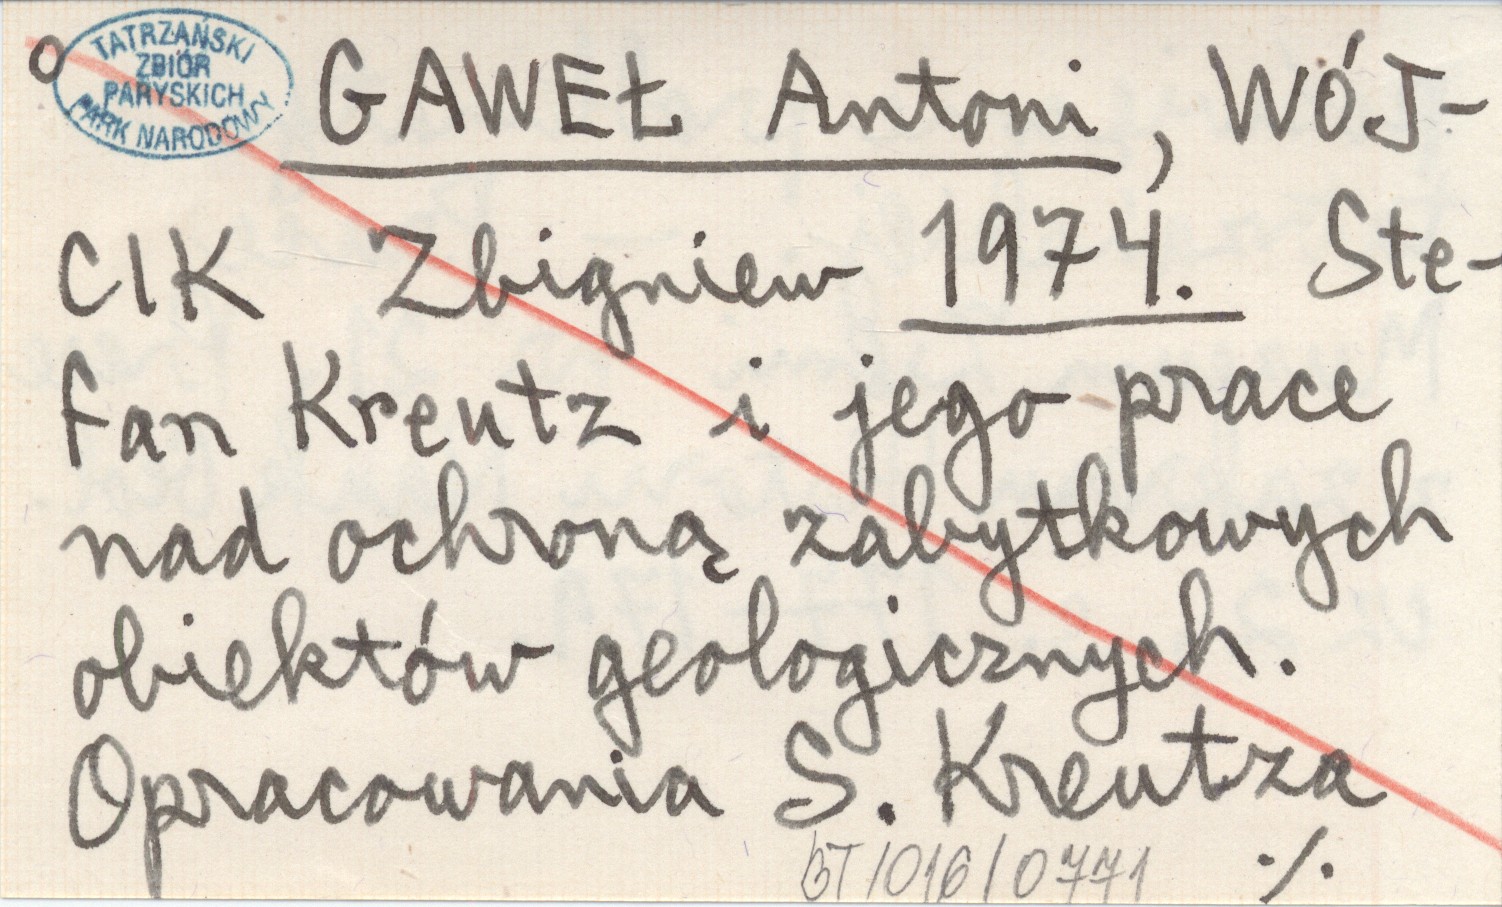 o
TATRZAŃSKI
ZBIÓR
PARYSKICH
PARK NARODOWY
GAWEŁ Antoni, WÓJ-
CIK Zbigniew 1974. Ste-
fan Kreutz i jego prace
nad ochroną zabytkowych
obiektów geologicznych.
Opracowania S. Kreutza
BT/016/0771 ./.